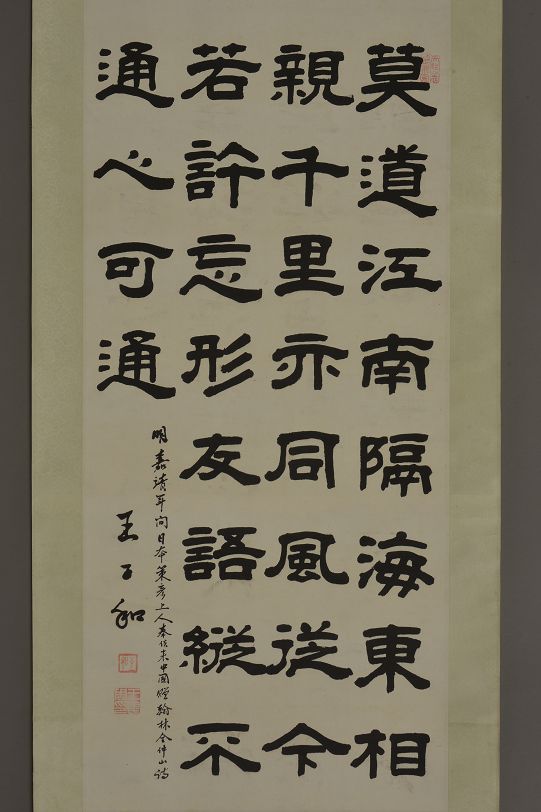 莫道江南隔海東相
親千里亦同風從今
若許忘形友語縱不
通心可通
明嘉靖年间日本策彦上人奉使来中國贈翰林仝仲山詩
王子和